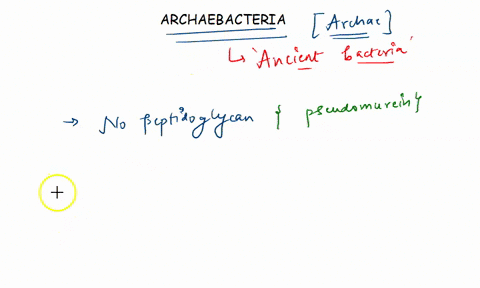 ARCHAEBACTERIA [Archae]
↳ 'Ancient bacteria'
→ No peptidoglycan { pseudomurein}